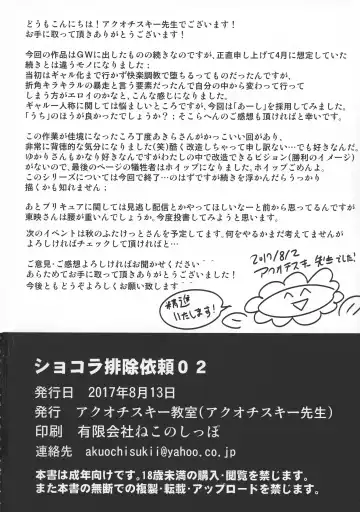 どうもこんにちは！アクオチスキー先生でございます！
お手に取って頂きありがとうございます！
今回の作品はGWに出したものの続きなのですが、正直申し上げて4月に想定していた
続きとは違うモノになりました；
当初はギャル化まで行かず快楽調教で堕ちるってものだったんですが、
折角キラキラルの暴走と言う要素だったんで自分の中から変わって行って
しまう方がエロイのかなと、こんな感じになりました。
ギャル一人称に関しては悩ましいところですが、今回は「あーし」を採用してみました。
「うち」のほうが良かったでしょうか？；そこらへんのご感想も頂ければと幸いです。
この作業が佳境になったころ丁度あきらさんがかっこいい回があり、
非常に背徳的な気分になりました(笑)酷く改造しちゃって申し訳ない…でも好きなんだ。
ゆかりさんもかなり好きなんですがわたしの中で改造できるビジョン(勝利のイメージ)
がないので、最後のページの犠牲者はホイップになりました。ホイップごめんよ。
このシリーズについては今回で終了…のはずですけど続きを浮かんだらうっかり
描くかも知れません；
あとプリキュアに関しては見逃し配信とかやってほしいなーと前から思ってるんですが
東映さんは腰が重いんでしょうか。今度投書してみようと思います。
次のイベントは秋のふたけっとさんを予定してます。何をやるかまだ考えてませんが
よろしければチェックして頂ければと…
ご意見・ご感想よろしければお聞かせください！
あらためてお手に取って頂きありがとうございました！
今後ともどうぞよろしくお願い致します！
2017/8/2
アクオチスキー先生でした！
#精進
いたします！
ショコラ排除依頼０２
発行日 2017年8月13日
発行 アクオチスキー教室(アクオチスキー先生)
印刷 有限会社ねこのしっぽ
連絡先 akuochisukii@yahoo.co.jp
本書は成年向けです。18歳未満の購入・閲覧を禁じます。
また本書の無断での複製・転載・アップロードを禁じます。